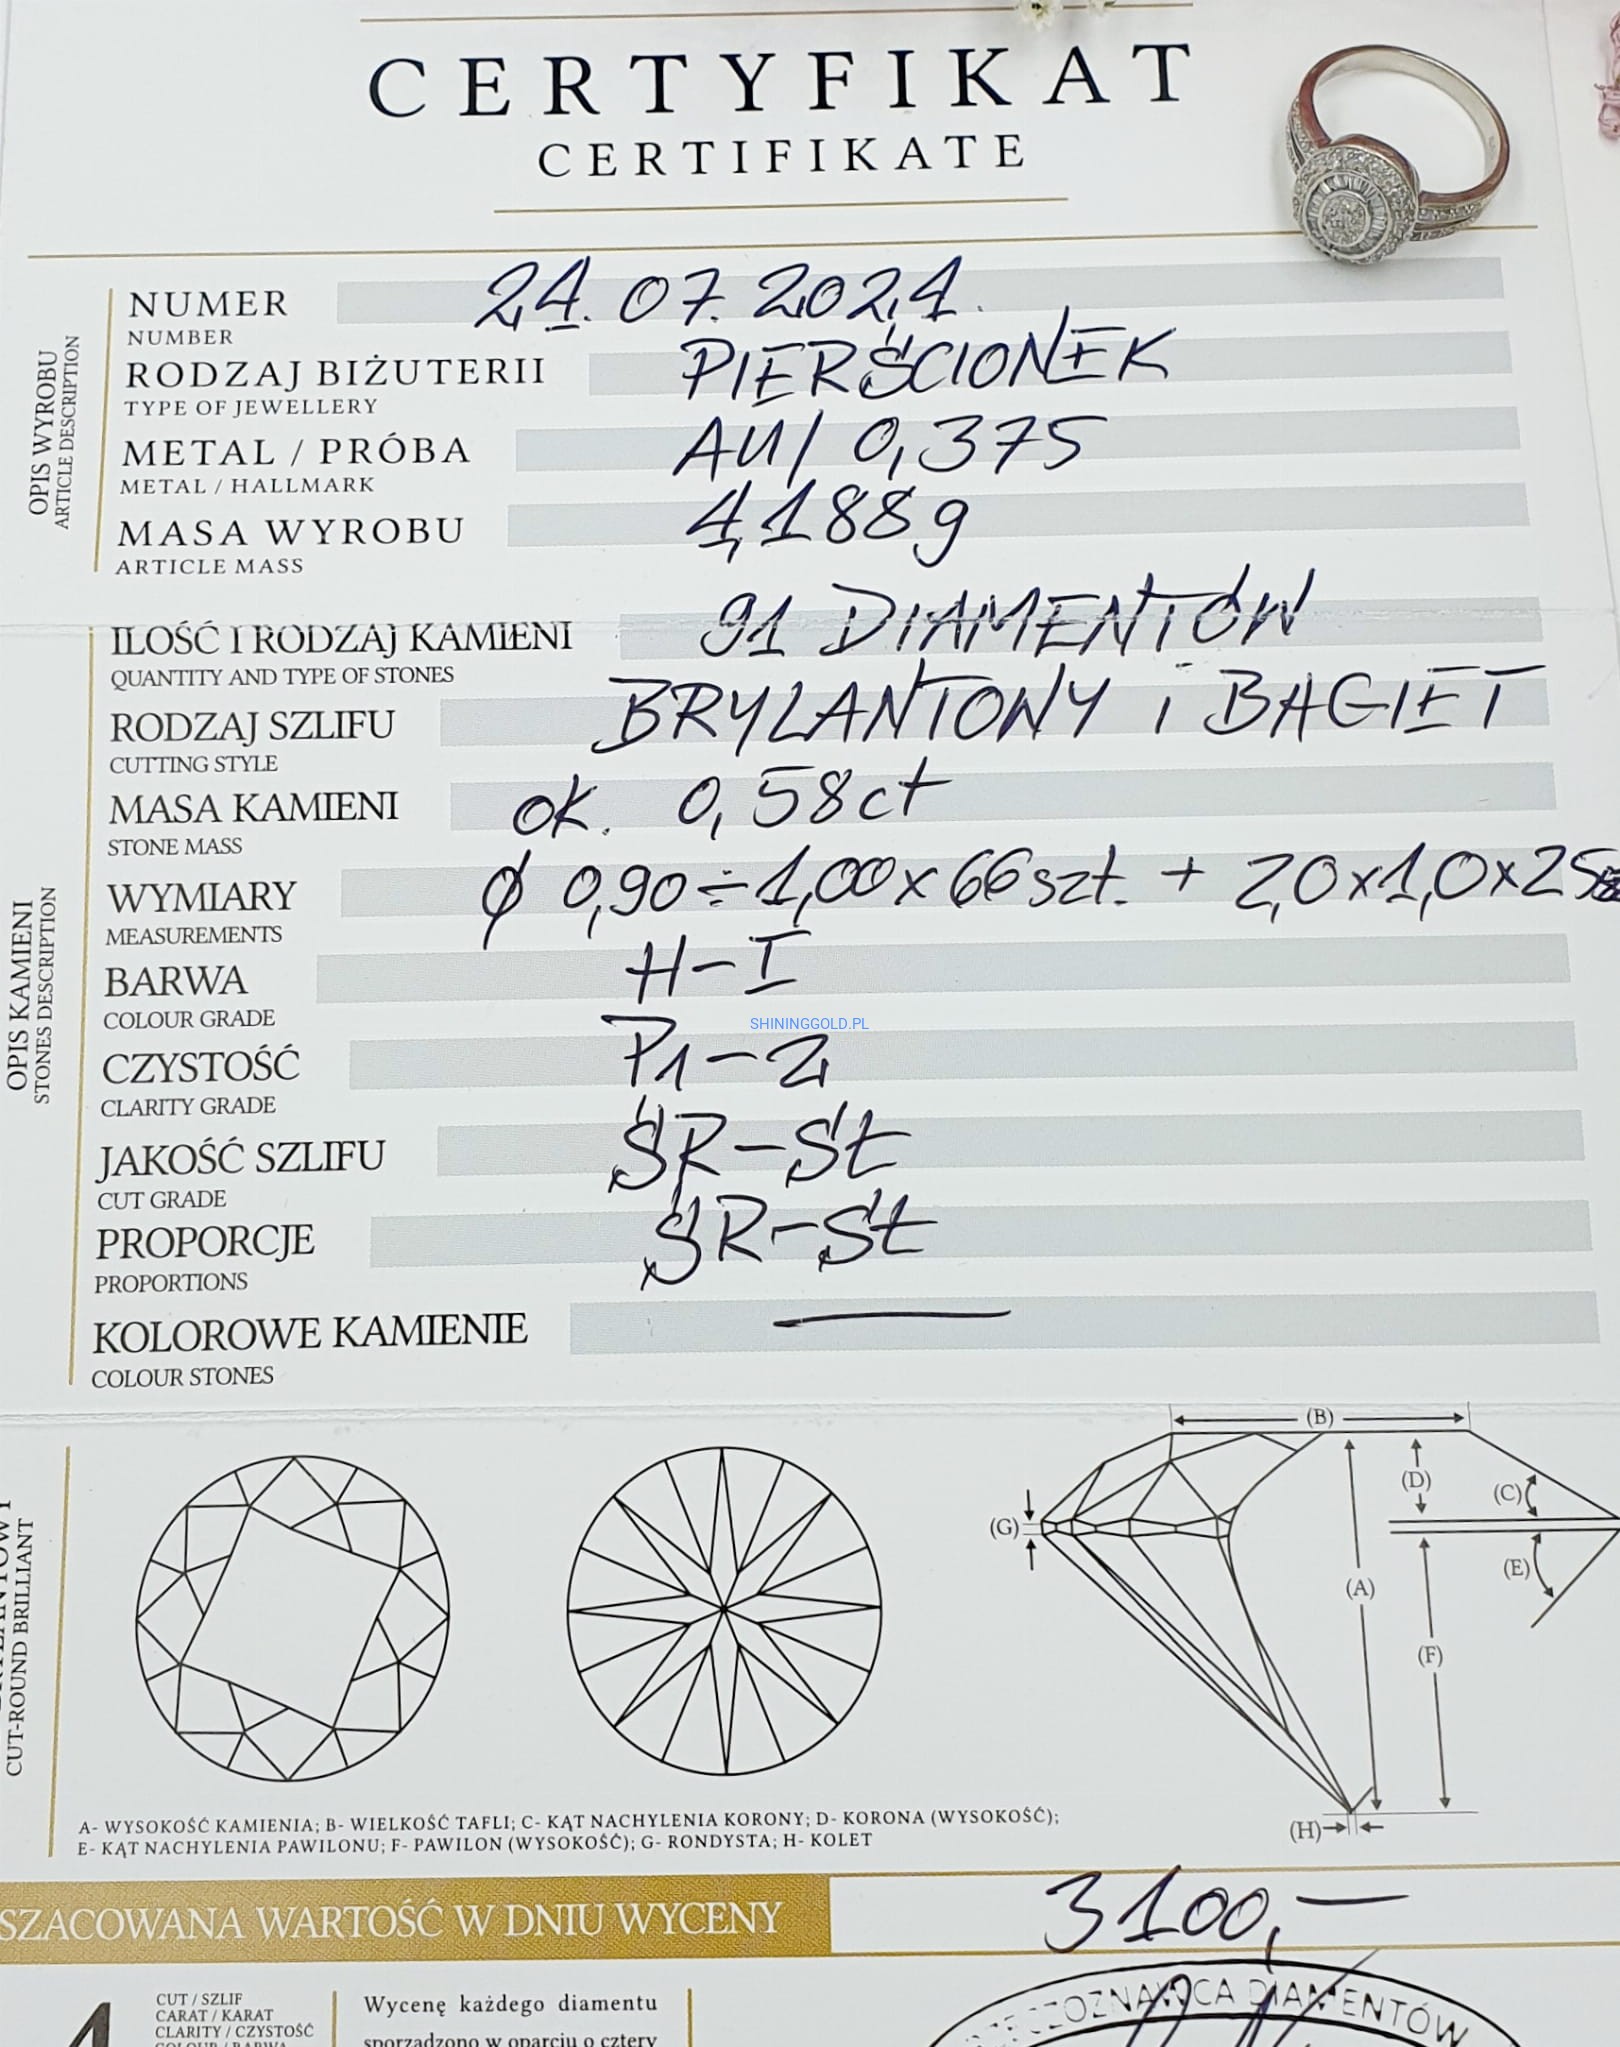 CERTYFIKAT
CERTIFIKATE
OPIS WYROBU
ARTICLE DESCRIPTION
NUMER 24.07.2024.
NUMBER
RODZAJ BIŻUTERII PIERŚCIONEK
TYPE OF JEWELLERY
METAL / PRÓBA AU/ 0,375
METAL / HALLMARK
MASA WYROBU 4,188g
ARTICLE MASS
OPIS KAMIENI
STONES DESCRIPTION
ILOŚĆ I RODZAJ KAMIENI 91 DIAMENTÓW
QUANTITY AND TYPE OF STONES
RODZAJ SZLIFU BRYLANTOWY i BAGIET
CUTTING STYLE
MASA KAMIENI ok. 0,58ct
STONE MASS
WYMIARY ϕ 0,90÷1,00x66szt. + 2,0x1,0x25
MEASUREMENTS
BARWA H-I
COLOUR GRADE
SHININGGOLD.PL
CZYSTOŚĆ P1-2
CLARITY GRADE
JAKOŚĆ SZLIFU ŚR-SŁ
CUT GRADE
PROPORCJE ŚR-SŁ
PROPORTIONS
KOLOROWE KAMIENIE —
COLOUR STONES
CUT-ROUND BRILLIANT
(B)
(D)
(C)
(G)
(E)
(A)
(F)
(H)
A- WYSOKOŚĆ KAMIENIA; B- WIELKOŚĆ TAFLI; C- KĄT NACHYLENIA KORONY; D- KORONA (WYSOKOŚĆ);
E- KĄT NACHYLENIA PAWILONU; F- PAWILON (WYSOKOŚĆ); G- RONDYSTA; H- KOLET
SZACOWANA WARTOŚĆ W DNIU WYCENY 3100,—
4
CUT / SZLIF
CARAT / KARAT
CLARITY / CZYSTOŚĆ
COLOUR / BARWA
Wycenę każdego diamentu
sporządzono w oparciu o cztery
RZECZOZNAWCA DIAMENTÓW